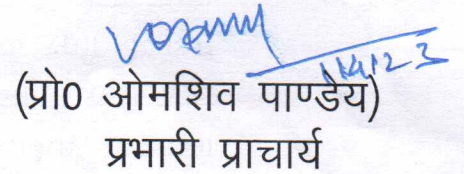 (प्रो0 ओमशिव पाण्डेय)
प्रभारी प्राचार्य